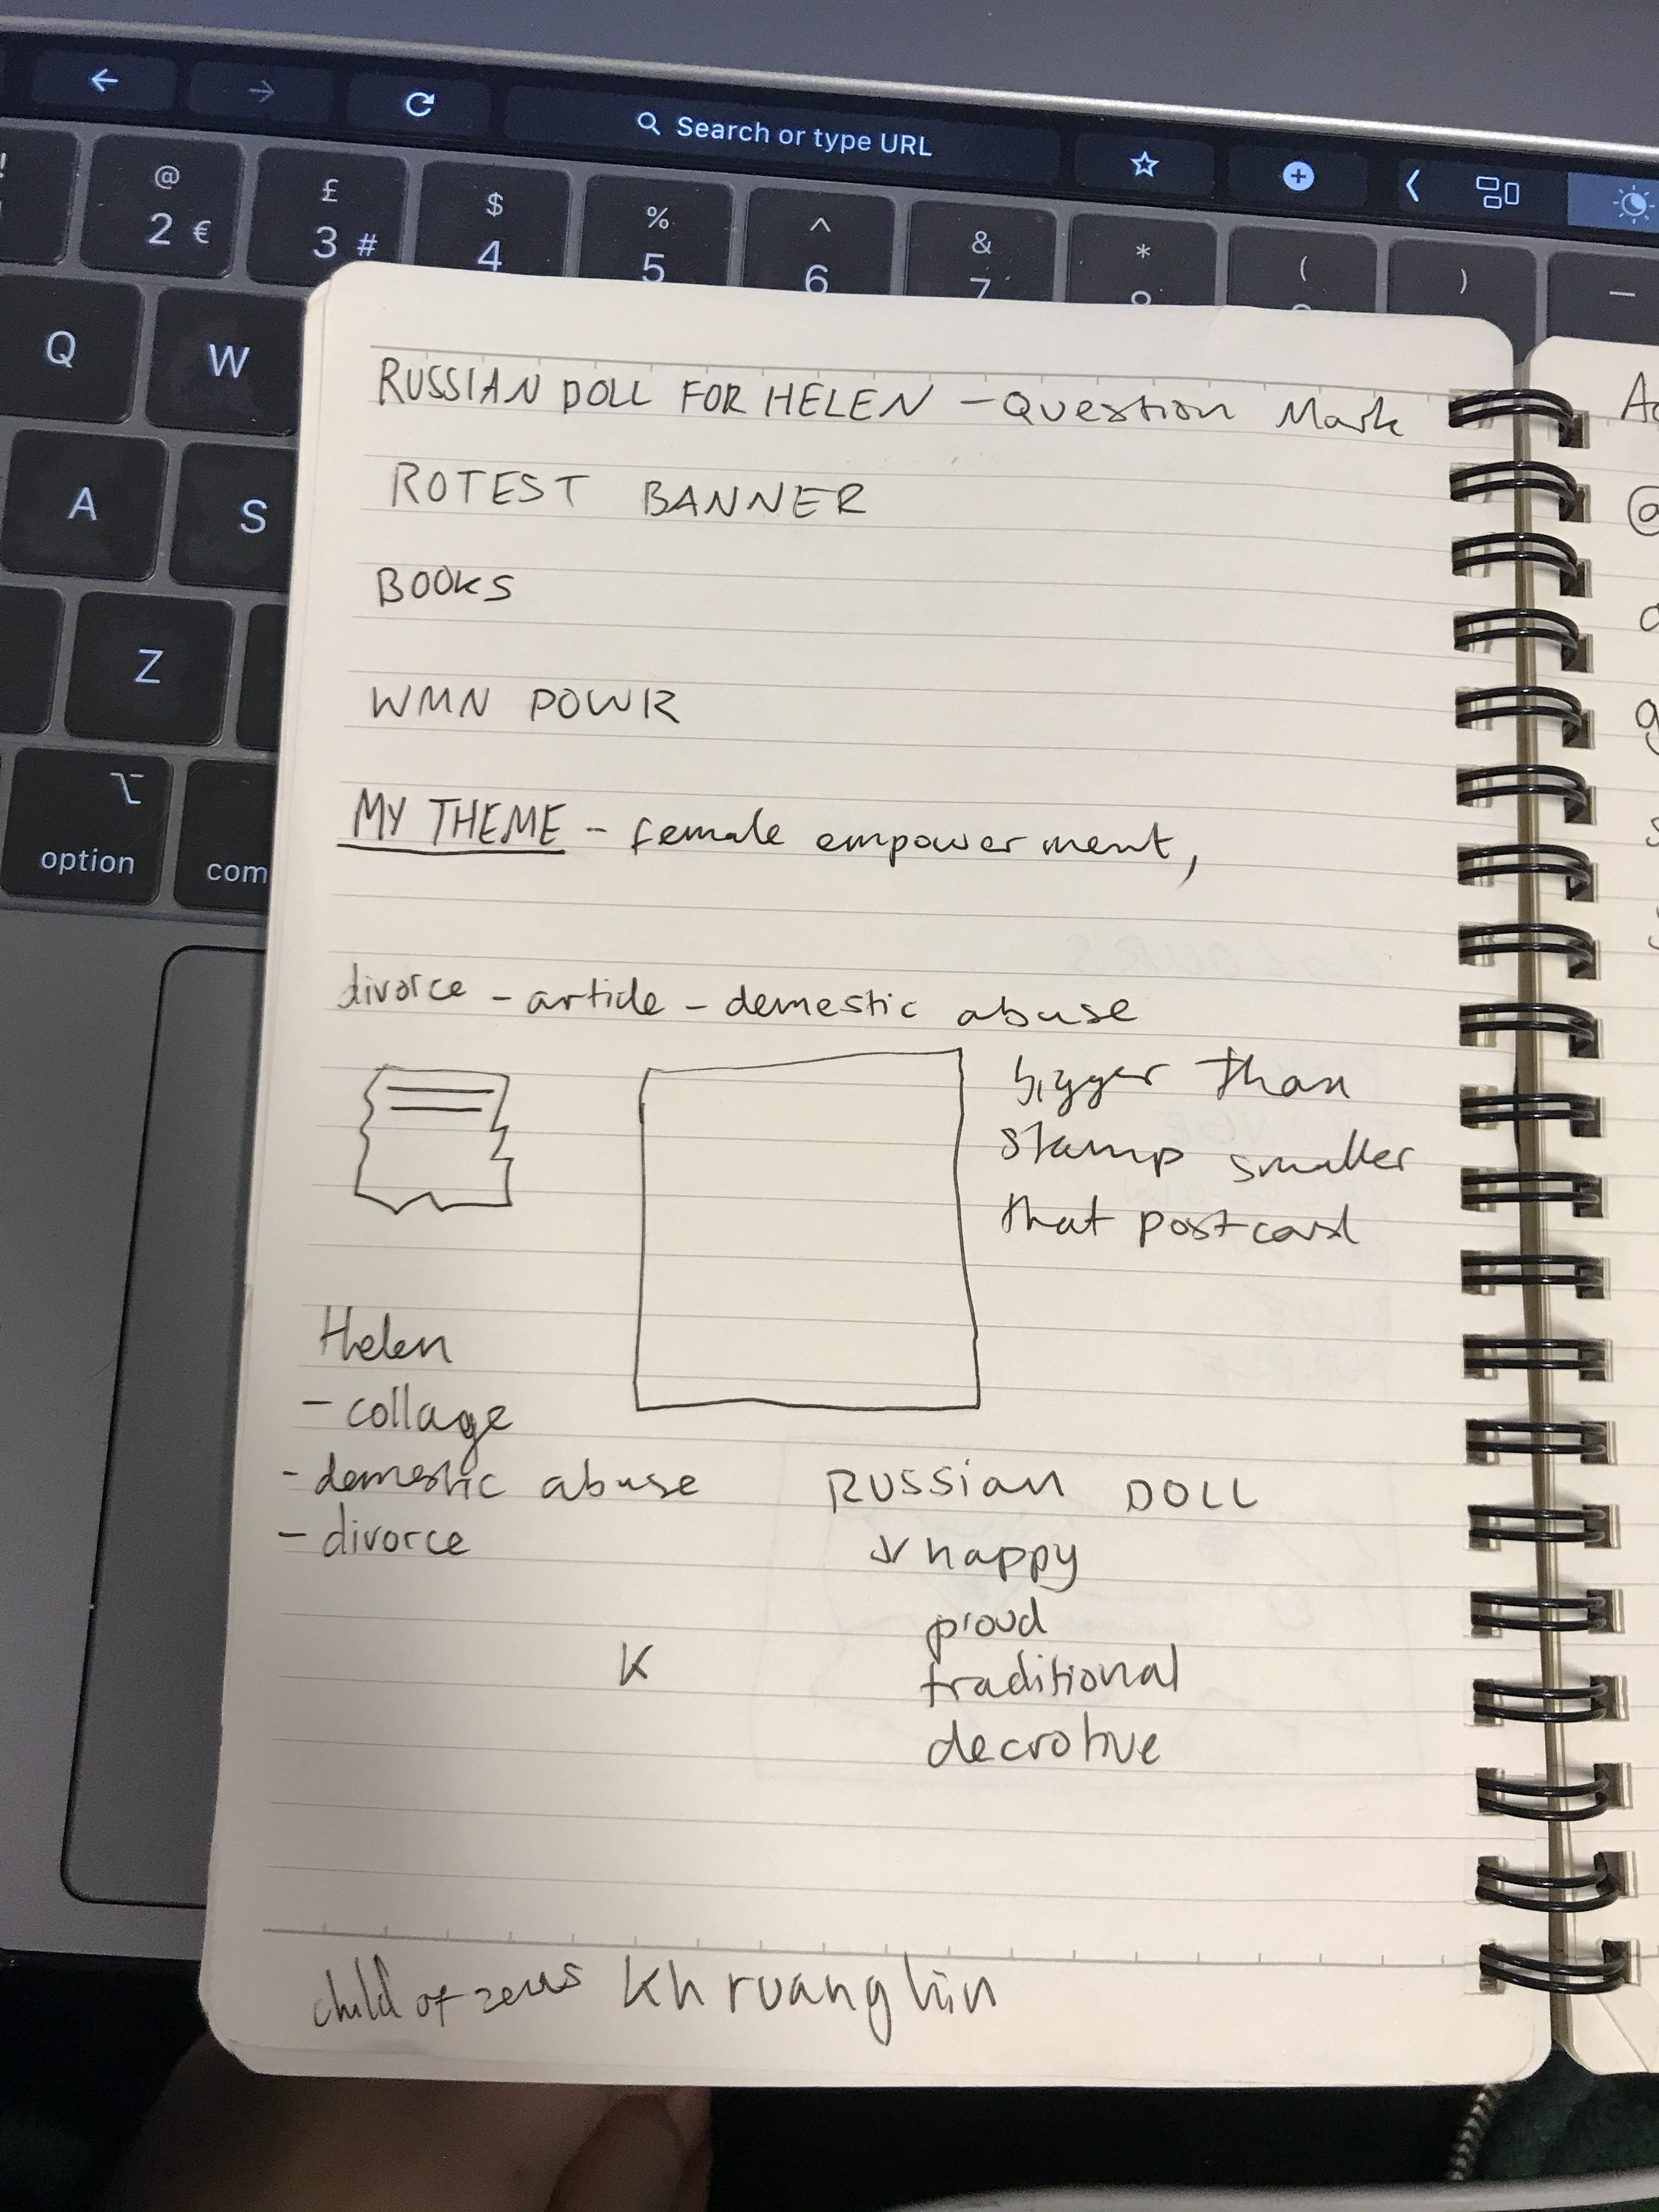 Search or type URL
!
@
2 €
£
3 #
$
4
%
5
^
6
&
7
*
(
)
Q
W
A
S
Z
option
com
RUSSIAN DOLL FOR HELEN - Question Mark
ROTEST BANNER
BOOKS
WMN POWR
MY THEME - female empowerment,
divorce - article - demestic abuse
bigger than
stamp smaller
that postcard
Helen
- collage
- demestic abuse
- divorce
RUSSian DOLL
happy
proud
traditional
decrotive
K
child of zeus Khruanghin